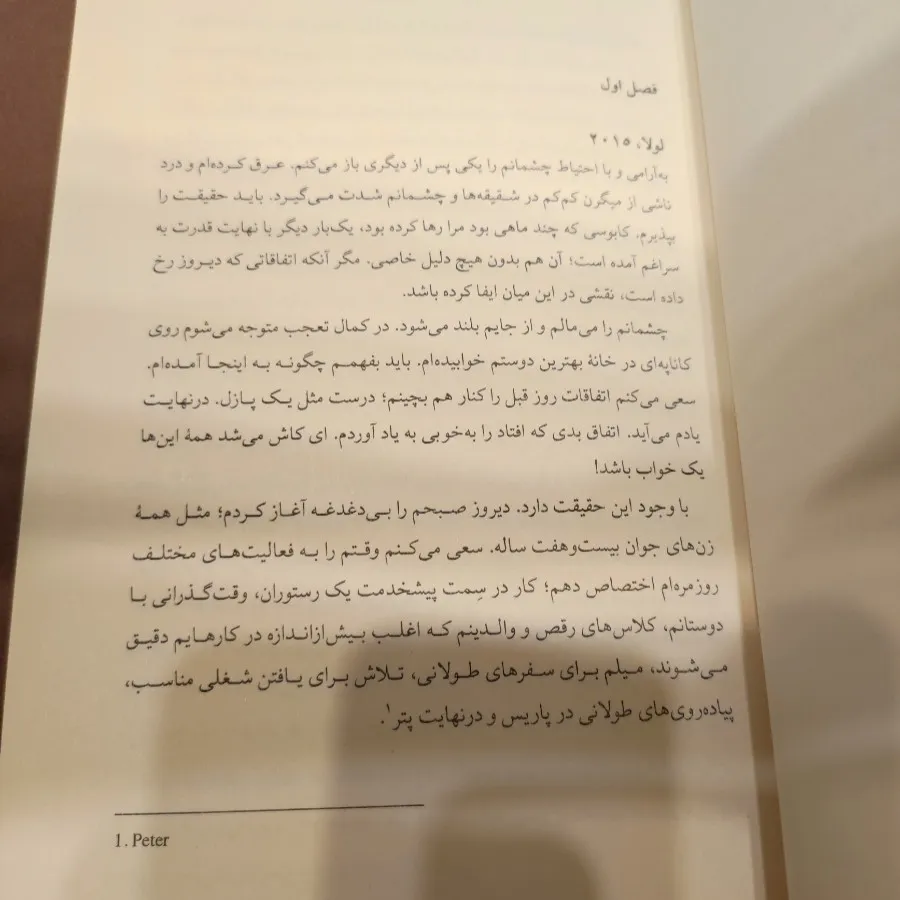 فصل اول
لولا، ۲۰۱۵
به‌آرامی و با احتیاط چشمانم را یکی پس از دیگری باز می‌کنم. عرق کرده‌ام و درد
ناشی از میگرن کم‌کم در شقیقه‌ها و چشمانم شدت می‌گیرد. باید حقیقت را
بپذیرم. کابوسی که چند ماهی بود مرا رها کرده بود، یک‌بار دیگر با نهایت قدرت به
سراغم آمده است؛ آن هم بدون هیچ دلیل خاصی. مگر آنکه اتفاقاتی که دیروز رخ
داده است، نقشی در این میان ایفا کرده باشد.
چشمانم را می‌مالم و از جایم بلند می‌شود. در کمال تعجب متوجه می‌شوم روی
کاناپه‌ای در خانهٔ بهترین دوستم خوابیده‌ام. باید بفهمم چگونه به اینجا آمده‌ام.
سعی می‌کنم اتفاقات روز قبل را کنار هم بچینم؛ درست مثل یک پازل. درنهایت
یادم می‌آید. اتفاق بدی که افتاد را به‌خوبی به یاد آوردم. ای کاش می‌شد همهٔ این‌ها
یک خواب باشد!
با وجود این حقیقت دارد. دیروز صبحم را بی‌دغدغه آغاز کردم؛ مثل همهٔ
زن‌های جوان بیست‌وهفت ساله. سعی می‌کنم وقتم را به فعالیت‌های مختلف
روزمره‌ام اختصاص دهم؛ کار در سِمت پیشخدمت یک رستوران، وقت‌گذرانی با
دوستانم، کلاس‌های رقص و والدینم که اغلب بیش‌ازاندازه در کارهایم دقیق
می‌شوند، میلم برای سفرهای طولانی، تلاش برای یافتن شغلی مناسب،
پیاده‌روی‌های طولانی در پاریس و درنهایت پتر۱.
1. Peter